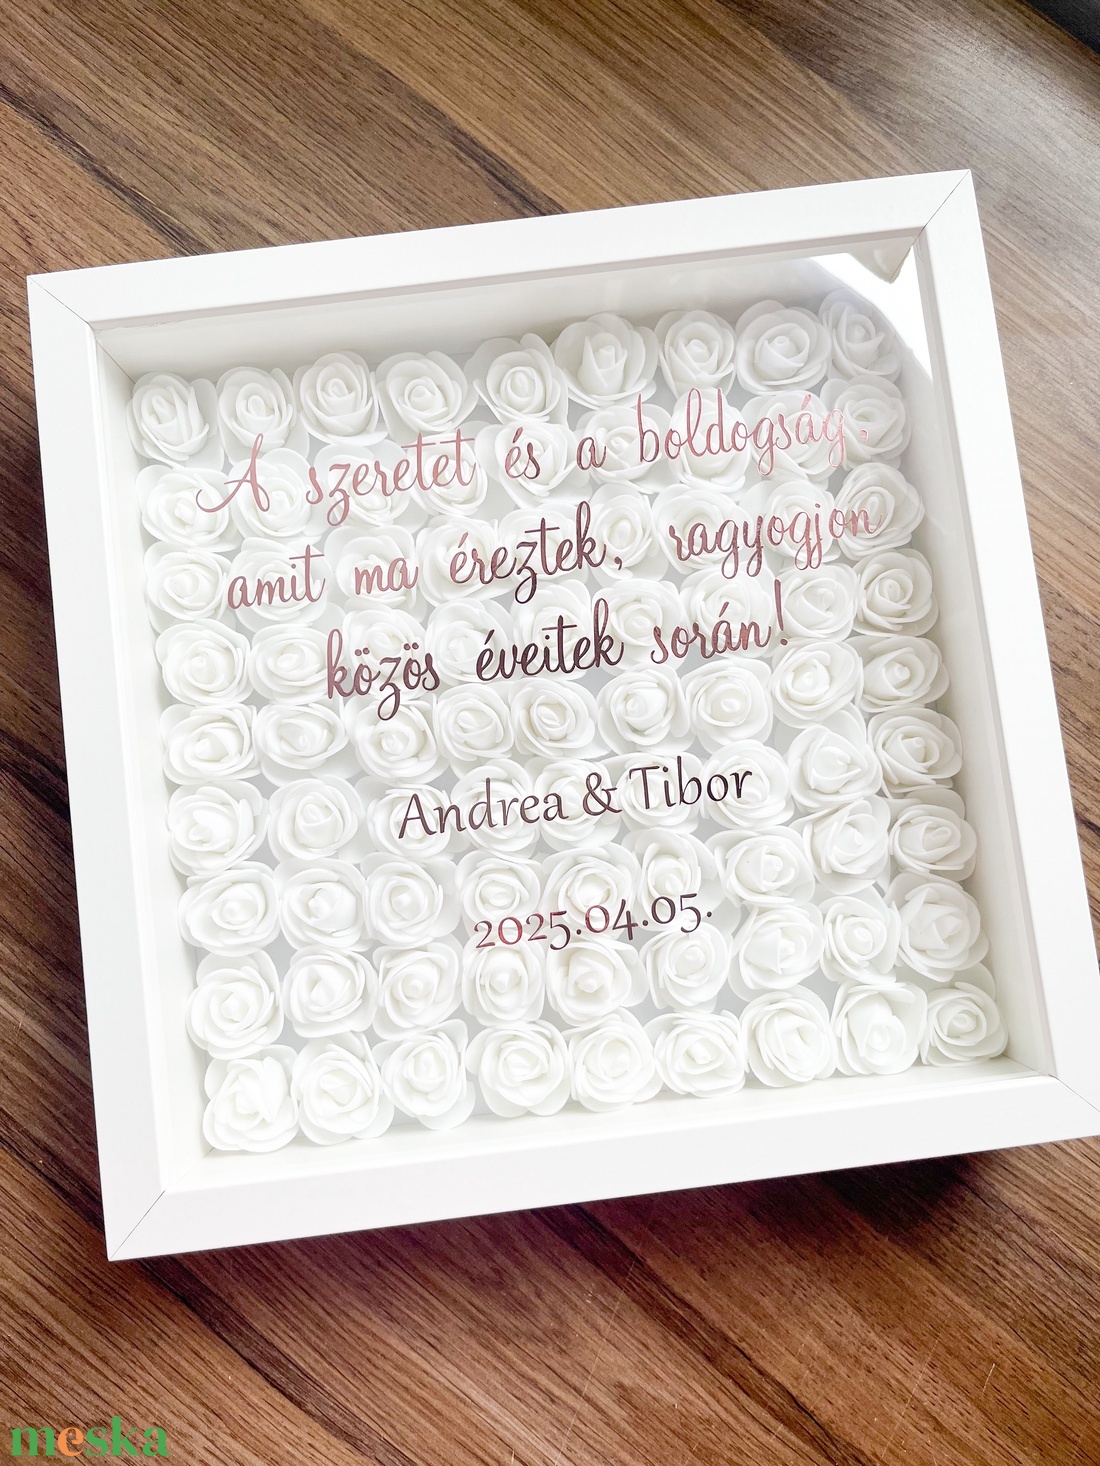 A szeretet és a boldogság,
amit ma éreztek, ragyogjon
közös éveitek során!
Andrea & Tibor
2025.04.05.
meska